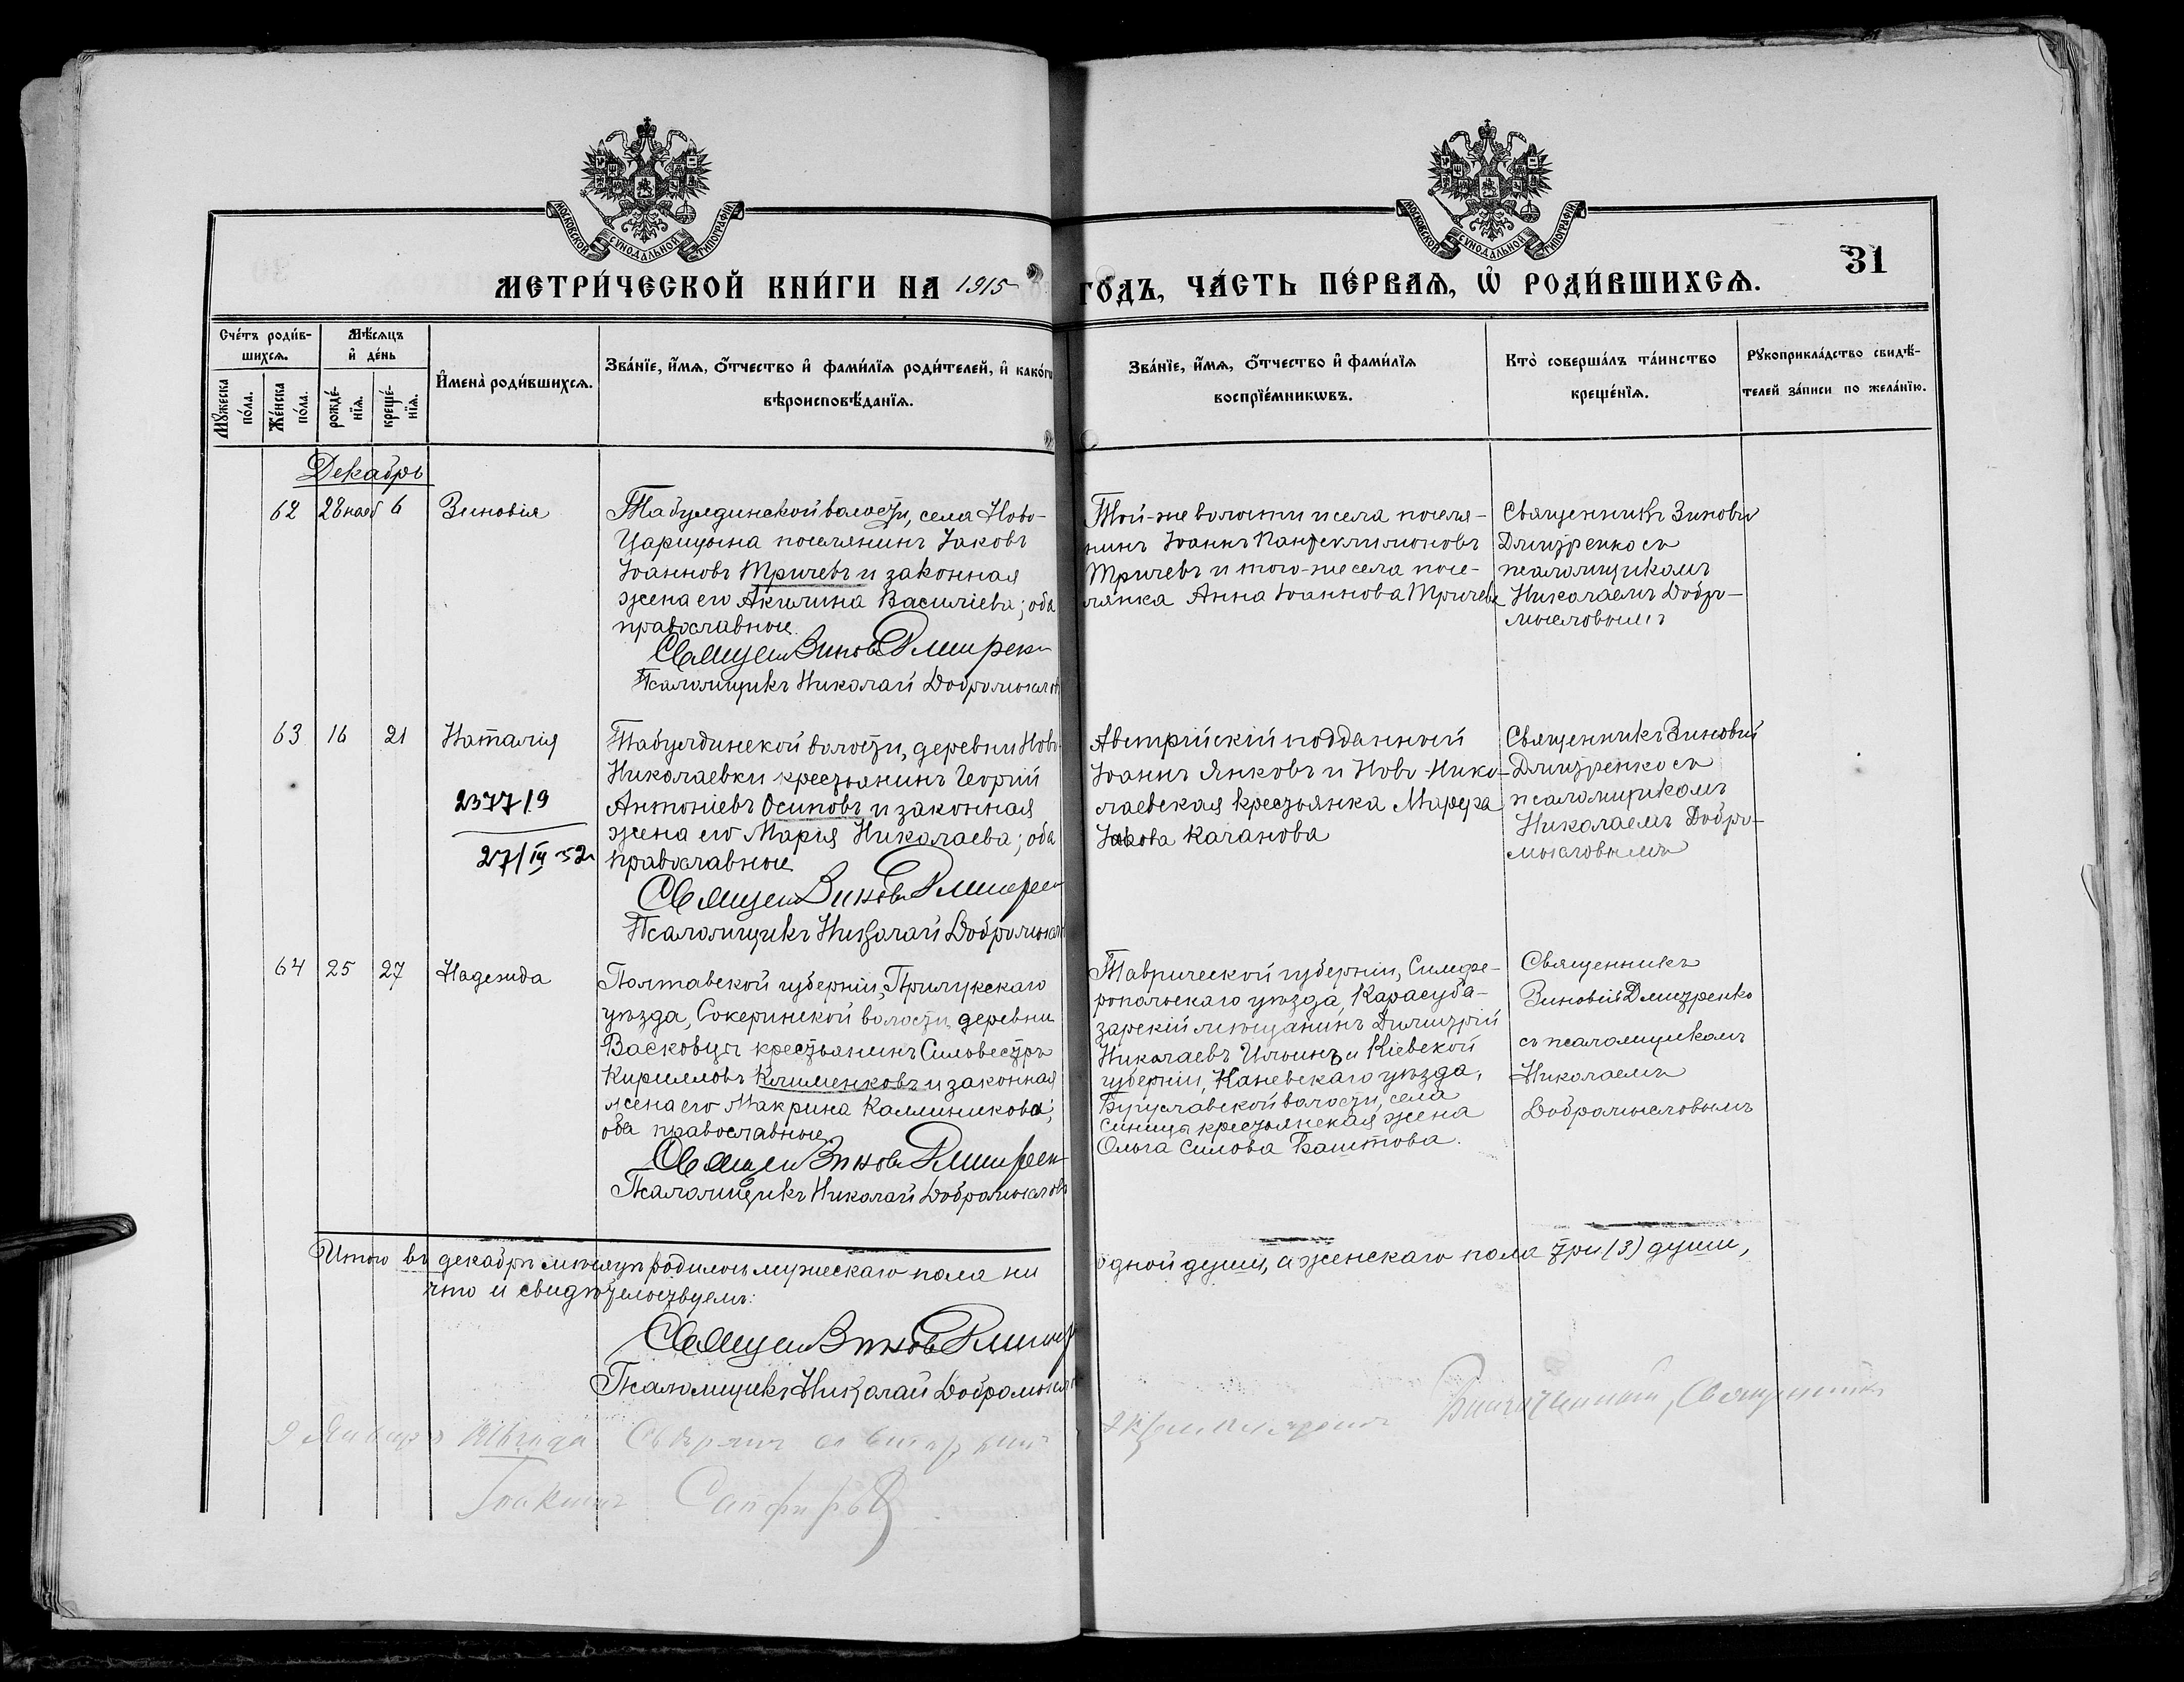 МОСКОВСКОЙ СѴНОДАЛЬНОЙ ТИПОГРАФІИ
МОСКОВСКОЙ СѴНОДАЛЬНОЙ ТИПОГРАФІИ
31
МЕТРИ́ЧЕСКОЙ КНИ́ГИ НА 1915 ГО́ДЪ, ЧА́СТЬ ПЕ́РВАѦ, Ѡ҆ РОДИ́ВШИХСѦ.
Сче́тъ роди́в-
шихсѧ.
Мѣ́сѧцъ
и҆ де́нь
Мꙋ́жеска
по́ла.
Же́нска
по́ла.
рожде́-
нїѧ.
креще́-
нїѧ.
И҆мена̀ роди́вшихсѧ.
Зва́нїе, и҆́мѧ, ѻ҆́тчество и҆ фами́лїѧ роди́телей, и҆ како́гѡ
вѣроисповѣ́данїѧ.
Зва́нїе, и҆́мѧ, ѻ҆́тчество и҆ фами́лїѧ
воспрїе́мникѡвъ.
Кто̀ соверша́лъ та́инство
креще́нїѧ.
Рꙋкоприкла́дство свидѣ́-
телей за́писи по жела́нїю.
Декабрь
62 28 нояб 6 Зиновія
Табулдинской волости, села Ново-
Царицына поселянинъ Іаковъ
Іоанновъ Тричевъ и законная
жена его Акилина Василіева; оба
православные.
Священ Зинов Дмитренк
Псаломщикъ Николай Добромыслов
Той-же волости и села поселя-
нинъ Іоаннъ Пантелеимоновъ
Тричевъ и того-же села посе-
лянка Анна Іоаннова Тричева
Священникъ Зиновій
Дмитренко съ
псаломщикомъ
Николаемъ Добро-
мысловымъ
63 16 21 Наталія
2377/9
27/IV 52
Табулдинской волости, деревни Ново-
Николаевки крестьянинъ Георгій
Антоніевъ Осиповъ и законная
жена его Марія Николаева; оба
православные
Священ Зинов Дмитрен
Псаломщикъ Николай Добромысл
Австрійскій подданный
Іоаннъ Янковъ и Ново-Нико-
лаевская крестьянка Марфа
Іакова Качанова
Священникъ Зиновій
Дмитренко съ
псаломщикомъ
Николаемъ Добро-
мысловымъ
64 25 27 Надежда
Полтавской губерніи, Прилукскаго
уѣзда, Сокеринской волости, деревни
Васковцы крестьянинъ Силовестръ
Кирилловъ Клименковъ и законная
жена его Макрина Каллиникова;
оба православные
Священ Зинов Дмитрен
Псаломщикъ Николай Добромыслов
Таврической губерніи, Симфе-
ропольскаго уѣзда, Карасуба-
зарскій мѣщанинъ Димитрій
Николаевъ Ильинъ и Кіевской
губерніи, Каневскаго уѣзда,
волости, села
Синицы крестьянская жена
Ольга Силова Баштова.
Священникъ
Зиновій Дмитренко
съ псаломщикомъ
Николаемъ
Добромысловымъ
Итого въ декабрѣ мѣсяцѣ родилось мужескаго пола ни одной души, а женскаго пола три (3) души,
что и свидѣтельствуемъ:
Священ Зинов Дмитр
Псаломщикъ Николай Добромысл
9 Января Свѣрялъ со вторымъ экземпляромъ Благочинный, Священникъ
Іоакимъ Сапфировъ